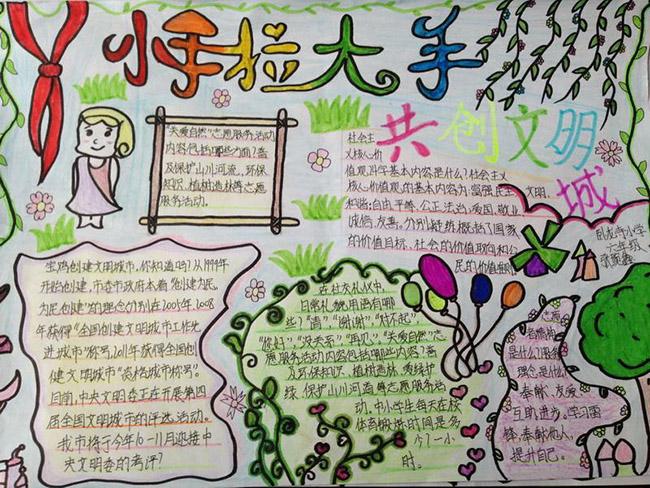 小手拉大手
共创文明城
"关爱自然"志愿服务活动
内容包括哪些方面?普
及保护山川河流,环保
知识,植树造林等志愿
服务活动。
社会主
义核心价
值观科学基本内容是什么?社会主义
核心价值观的基本内容为:富强,民主,文明,
和谐;自由,平等,公正,法治;爱国,敬业,
诚信,友善。分别链括了国家
的价值目标、社会的价值取向和公
民的价值
卧龙寺小学
六年级
宝鸡创建文明城市,你知道吗?从1999年
开始创建,市委市政府本着"创建为民,
为民创建"的理念分别在2006年、2008
年获得"全国创建文明城市工作先
进城市"称号,2011年获得全国创
健文明城市"提名城市称号"
目前,中央文明委正在开展第四
届全国文明城市的评选活动。
我市将于今年6-11月迎接中
央文明委的考评?
在社交礼仪中,
日常礼貌用语有哪
些?"请","谢谢","对不起",
"你好","没关系","再见","关爱自然"志
愿服务活动内容包括哪些内容?普
及环保知识、植树造林、爱绿护
绿、保护山川河道等志愿服务活
动。中小学生每天在校
体育锻炼时间是多
少?一小
时。
志愿
者精神
是什么?服务
理念是什么?
奉献、友爱、
互助、进步,学习雷
锋、奉献他人,
提升自己。